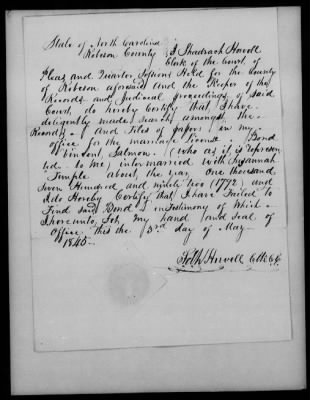 State of North Carolina
Robeson County } I Shadrach Howell
Clerk of the Court of
Pleas and Quarter Sessions Held for the County
of Robeson aforesaid and the Keeper of the
Records and Judicial proceedings of said
Court do hereby Certify that I have
diligently made search amongst the
Records and files of papers in my
office for the marriage License Bond
Vincent Salmon (who as it is represen
ted to me) intermarried with Susannah
Temple about the year one thousand
Seven Hundred and ninety two (1792) and
I do Hereby Certify that I have failed to
find said Bond in Testimony of Which
I hereunto Set my hand and seal of
Office this the 3rd day of May
1845
Sh Howell Clk